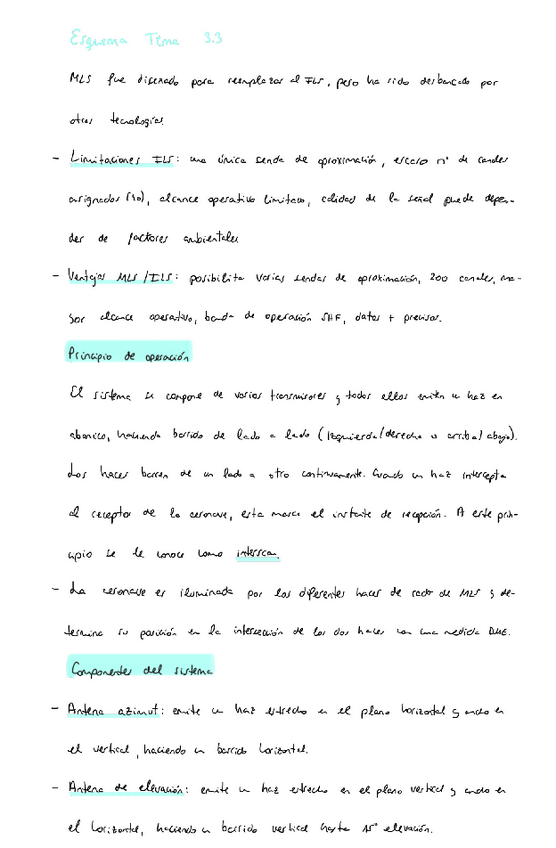 Esquema Tema 3.3
MLS fue diseñado para reemplazar al ILS, pero ha sido desbancado por
otras tecnologías.
- Limitaciones ILS: una única senda de aproximación, escaso nº de canales
asignados (40), alcance operativo limitado, calidad de la señal puede depen-
der de factores ambientales
- Ventajas MLS/ILS: posibilita varias sendas de aproximación, 200 canales, ma-
yor alcance operativo, banda de operación SHF, datos + precisos.
Principio de operación
El sistema se compone de varios transmisores y todos ellos emiten un haz en
abanico, haciendo barrido de lado a lado (izquierda/derecha o arriba/abajo).
Los haces barren de un lado a otro continuamente. Cuando un haz intercepta
al receptor de la aeronave, esta marca el instante de recepción. A este prin-
cipio se le conoce como
- La aeronave es iluminada por los diferentes haces de MLS y de-
termina su posición en la intersección de los dos haces con una medida DME.
Componentes del sistema
- Antena azimut: emite un haz estrecho en el plano horizontal y ancho en
el vertical, haciendo un barrido horizontal.
- Antena de elevación: emite un haz estrecho en el plano vertical y ancho en
el horizontal, haciendo un barrido vertical hasta 15° elevación.